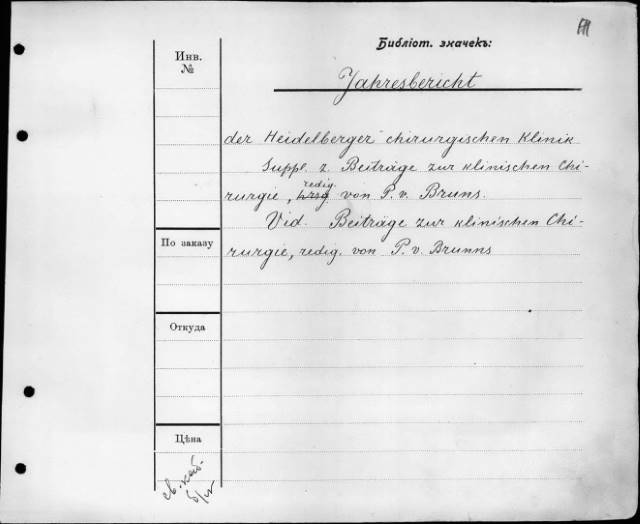 Библіот. значекъ:
Инв.
№
Jahresbericht
der Heidelberger chirurgischen Klinik
Suppl. z. Beiträge zur klinischen Chi-
redig.
rurgie, hrsg. von P. v. Bruns.
Vid. Beiträge zur klinischen Chi-
rurgie, redig. von P. v. Brunns
По заказу
Откуда
Цѣна